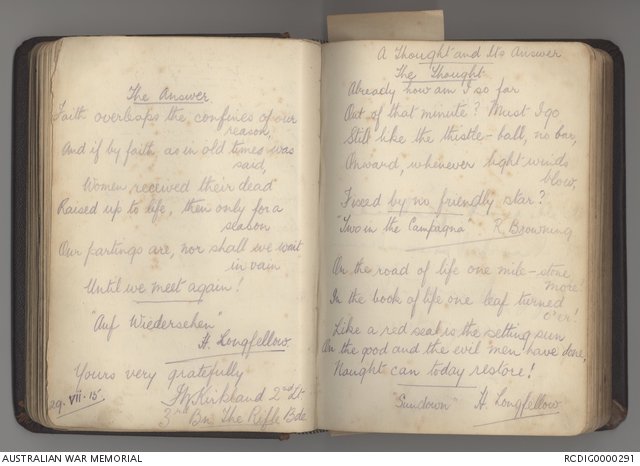 The Answer
Faith overleaps the confines of our
reason,
And if by faith, as in old times was
said,
Women received their dead
Raised up to life, then only for a
season
Our partings are, nor shall we wait
in vain
Until we meet again!
"Auf Wiedersehen"
H. Longfellow.
Yours very gratefully
Kirkland 2nd Lt
29. VII. 15.
3rd Bn The Rifle Bde
A Thought and Its Answer
The Thought.
Already how am I so far
Out of that minute? Must I go
Still like the thistle-ball, no bar,
Onward, whenever light winds
blow,
Fixed by no friendly star?
"Two in the Campagna" R. Browning
On the road of life one mile-stone
more!
In the book of life one leaf turned
o'er!
Like a red seal is the setting sun
On the good and the evil men have done,
Naught can today restore!
"Sundown" H. Longfellow.
AUSTRALIAN WAR MEMORIAL
RCDIG0000291